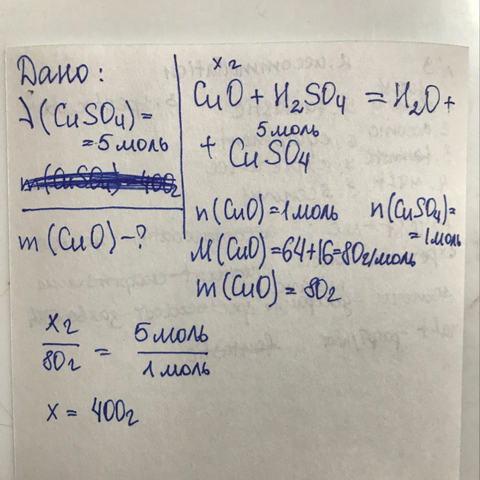 Дано:
λ(CuSO₄)=
=5моль
m(CuSO₄)-400г
m(CuO)-?
xг
CuO+H₂SO₄=H₂O+
5моль
+CuSO₄
n(CuO)=1моль
n(CuSO₄)=
=1моль
M(CuO)=64+16=80г/моль
m(CuO)=80г
xг/80г = 5моль/1моль
x=400г